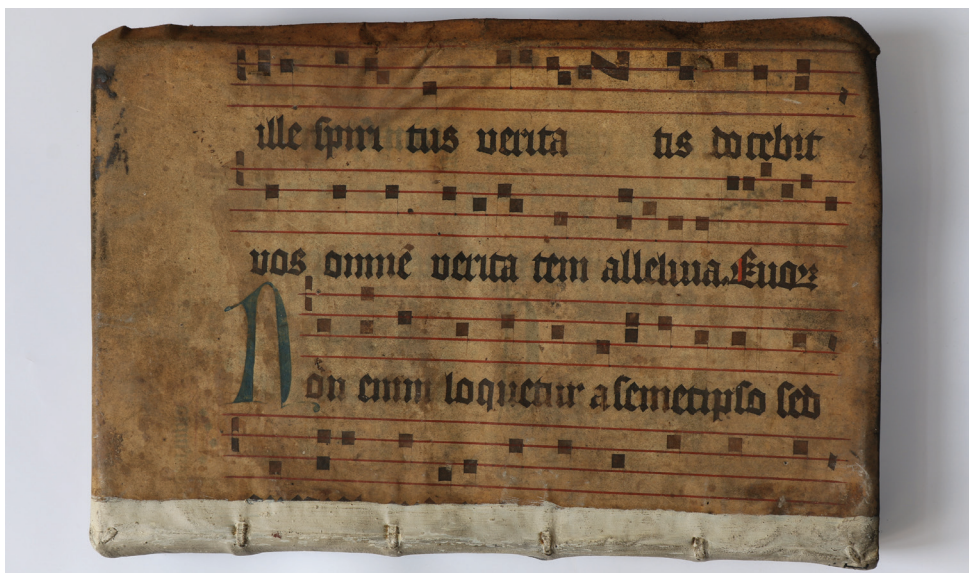 ille spiri tus verita tis docebit
vos omnē verita tem alleluia. Euoꝝ
Non enim loquetur a semetipso sed